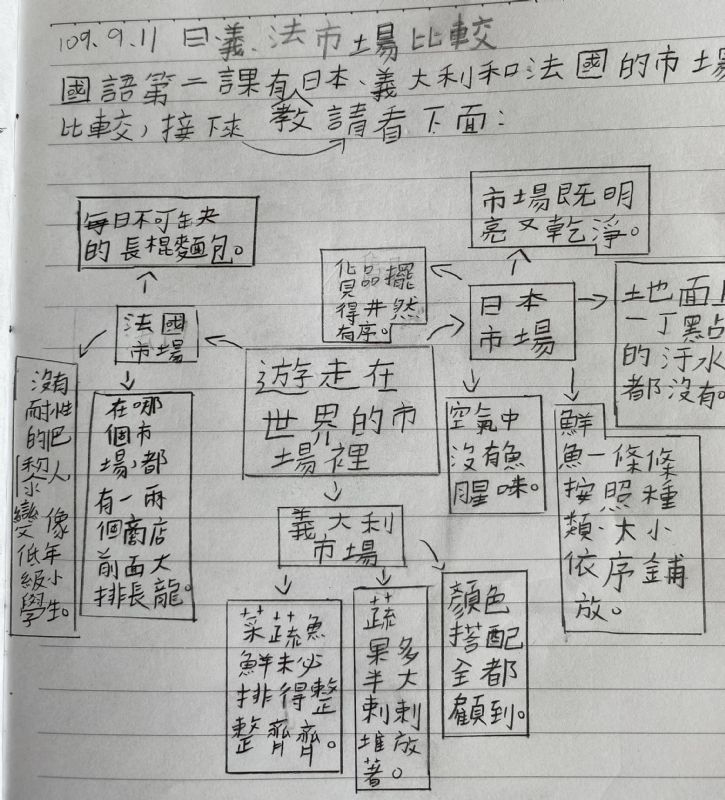 109.9.11 日、義、法市場比較
國語第二課有教日本、義大利和法國的市場
比較，接下來請看下面：
每日不可缺
的長棍麵包。
貨品擺
得井然
有序。
市場既明
亮又乾淨。
法國
市場
日本
市場
土地面上
一丁點
的汙水
都沒有。
沒有
耐性
的巴
黎人
變像
低年
級小
學生。
在哪
個市
場，都
有一兩
個商店
前面大
排長龍。
遊走在
世界的市
場裡
空氣中
沒有魚
腥味。
鮮
魚一條條
按照種
類、大小
依序鋪
放。
義大利
市場
菜蔬魚
鮮未必
排得整
整齊齊。
蔬
果多
半大
剌剌
堆放
著。
顏色
搭配
全都
顧到。